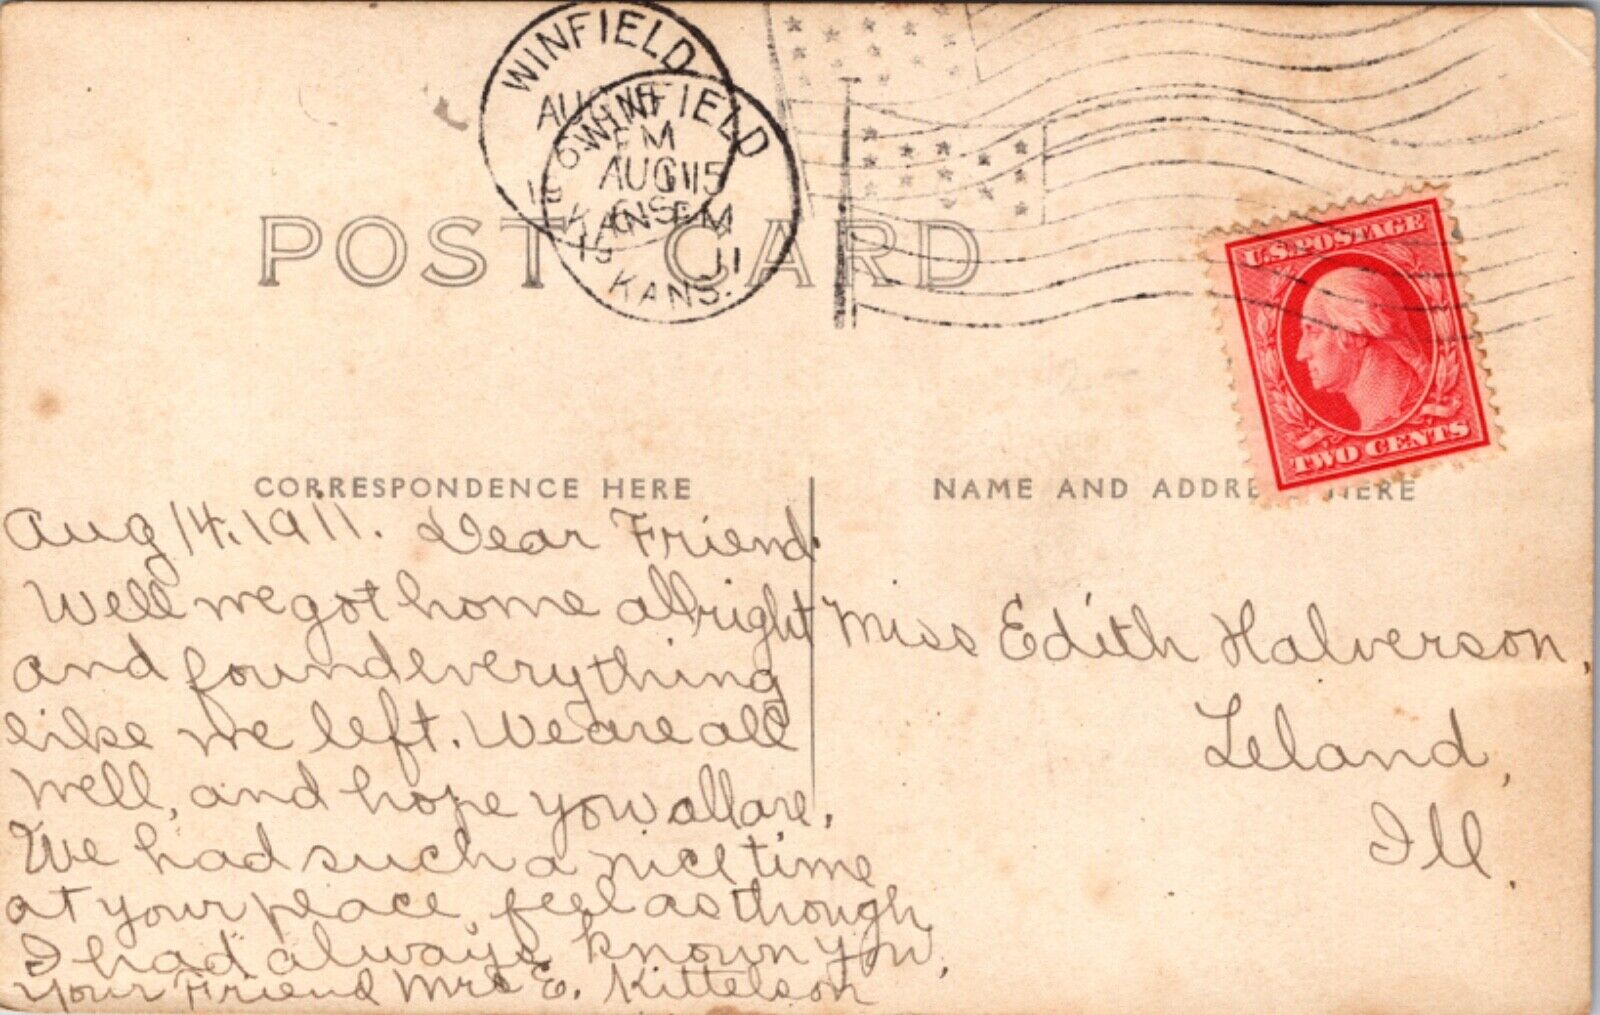 WINFIELD
AUG
PM
KANS.
WINFIELD
AUG 15
6 PM
11
KANS.
POST CARD
U.S. POSTAGE
TWO CENTS
CORRESPONDENCE HERE
NAME AND ADDRE HERE
Aug 14, 1911. Dear Friend.
Well we got home allright
and found everything
like we left. We are all
well, and hope you all are.
We had such a nice time
at your place, feel as though
I had always known you.
Your Friend Mrs E. Kittelson
Miss Edith Halverson,
Leland,
Ill.